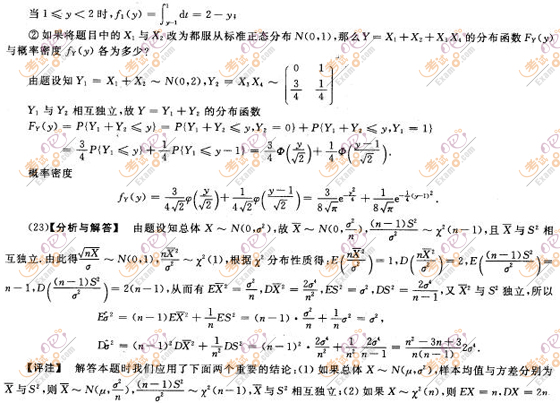 当1≤y<2时,f₁(y)=∫_{y-1}^{1}dt=2-y;
②如果将题目中的X₁与X₂改为都服从标准正态分布N(0,1),那么Y=X₁+X₂+X₃X₄的分布函数F_Y(y)
与概率密度f_Y(y)各为多少?
由题设知Y₁=X₁+X₂~N(0,2),Y₂=X₃X₄~(0 1; 3/4 1/4)
Y₁与Y₂相互独立,故Y=Y₁+Y₂的分布函数
F_Y(y)=P{Y₁+Y₂≤y}=P{Y₁+Y₂≤y,Y₂=0}+P{Y₁+Y₂≤y,Y₂=1}
=3/4P{Y₁≤y}+1/4P{Y₁≤y-1}=3/4Φ(y/√2)+1/4Φ((y-1)/√2).
概率密度
f_Y(y)=3/(4√2)φ(y/√2)+1/(4√2)φ((y-1)/√2)=3/(8√π)e^{-y²/4}+1/(8√π)e^{-1/4(y-1)²}.
(23)【分析与解答】 由题设知总体X~N(0,σ²),故X̄~N(0,σ²/n),(n-1)S²/σ²~χ²(n-1),且X̄与S²相
互独立.由此得√nX̄/σ~N(0,1),nX̄²/σ²~χ²(1),根据χ²分布性质得,E(nX̄²/σ²)=1,D(nX̄²/σ²)=2,E((n-1)S²/σ²)=
n-1,D((n-1)S²/σ²)=2(n-1),从而有EX̄²=σ²/n,DX̄²=2σ⁴/n²,ES²=σ²,DS²=2σ⁴/(n-1),又X̄²与S²独立,所以
Eσ̂²=(n-1)EX̄²+1/nES²=(n-1)·σ²/n+1/nσ²=σ²,
Dσ̂²=(n-1)²DX̄²+1/n²DS²=(n-1)²·2σ⁴/n²+1/n²·2σ⁴/(n-1)=(n²-3n+3)/(n(n-1))2σ⁴.
【评注】 解答本题时我们应用了下面两个重要的结论:(1)如果总体X~N(μ,σ²),样本均值与方差分别为
X̄与S²,则X̄~N(μ,σ²/n),(n-1)S²/σ²~χ²(n-1),X̄与S²相互独立;(2)如果X~χ²(n),则EX=n,DX=2n